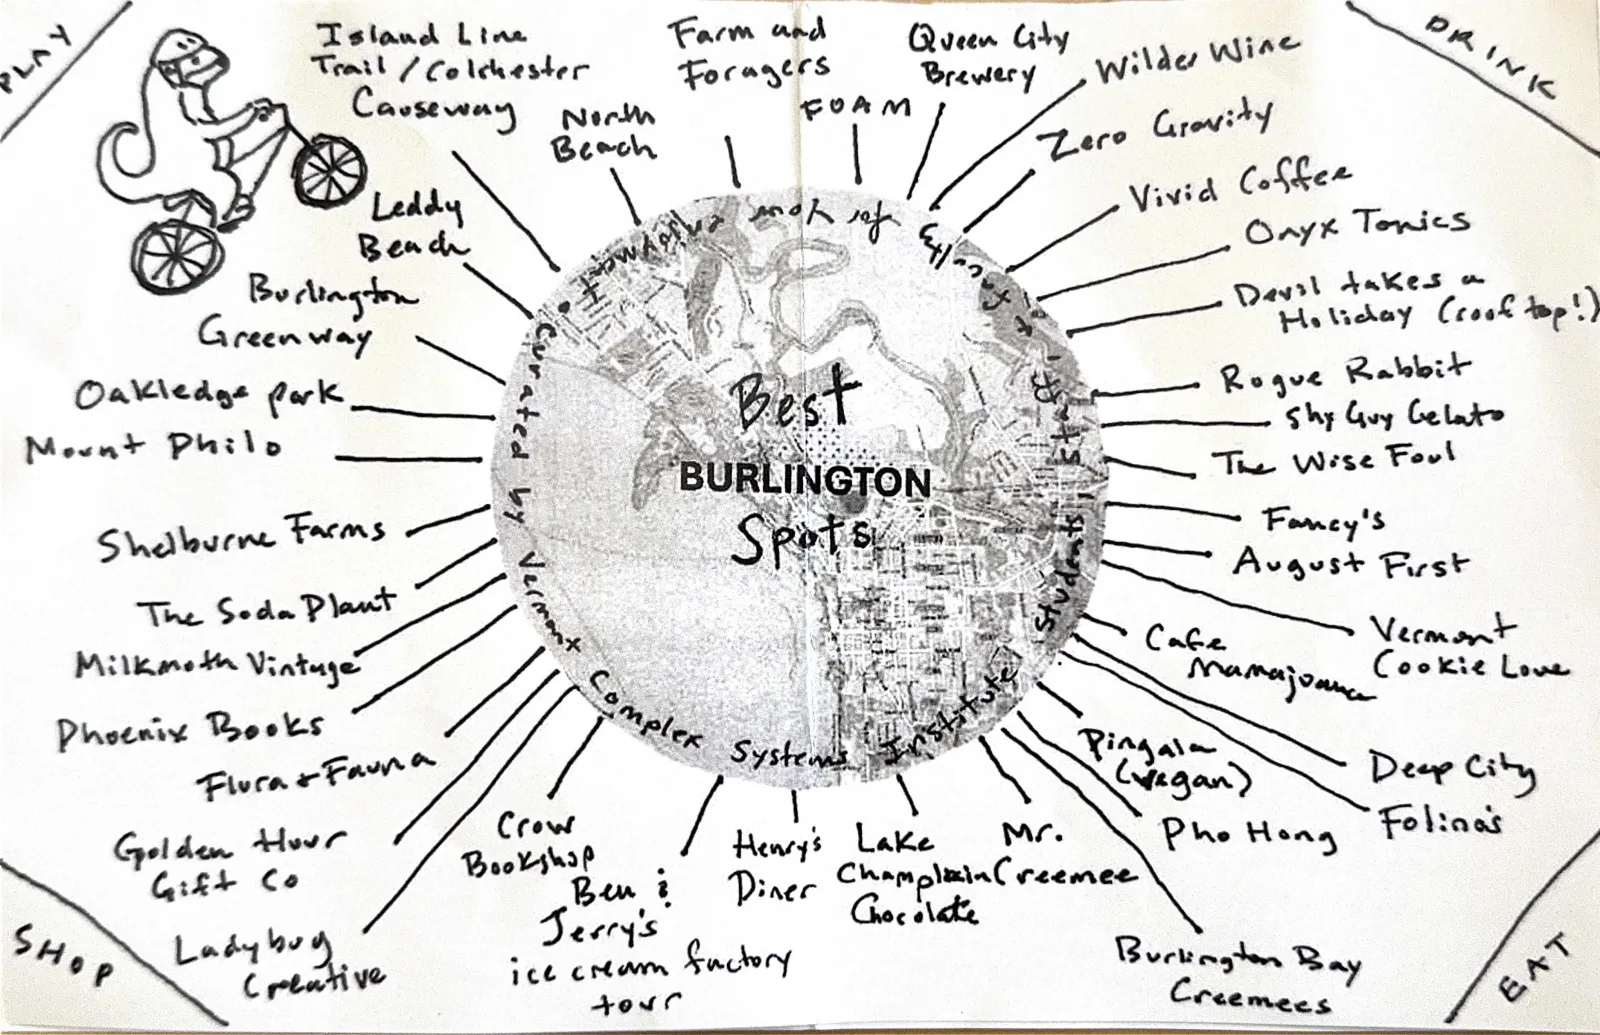 PLAY
Island Line
Trail / Colchester
Causeway
North
Beach
Farm and
Foragers
FOAM
Queen City
Brewery
Wilder Wine
Zero Gravity
Vivid Coffee
Onyx Tonics
Devil takes a
Holiday (roof top!)
Rogue Rabbit
Shy Guy Gelato
The Wise Foul
Fancy's
August First
Vermont
Cookie Love
Cafe
Mamajuana
Deep City
Folino's
Pingala
(vegan)
Pho Hong
Burlington Bay
Creemees
Mr.
Creemee
Lake
Champlain
Chocolate
Henry's
Diner
Ben &
Jerry's
ice cream factory
tour
Crow
Bookshop
Ladybug
Creative
Golden Hour
Gift Co
Flora + Fauna
Phoenix Books
Milkmoth Vintage
The Soda Plant
Shelburne Farms
Mount Philo
Oakledge park
Burlington
Greenway
Leddy
Beach
DRINK
EAT
SHOP
Best
BURLINGTON
Spots
Curated by Vermont Complex Systems Institute
Students, Staff, + Faculty for your enjoyment